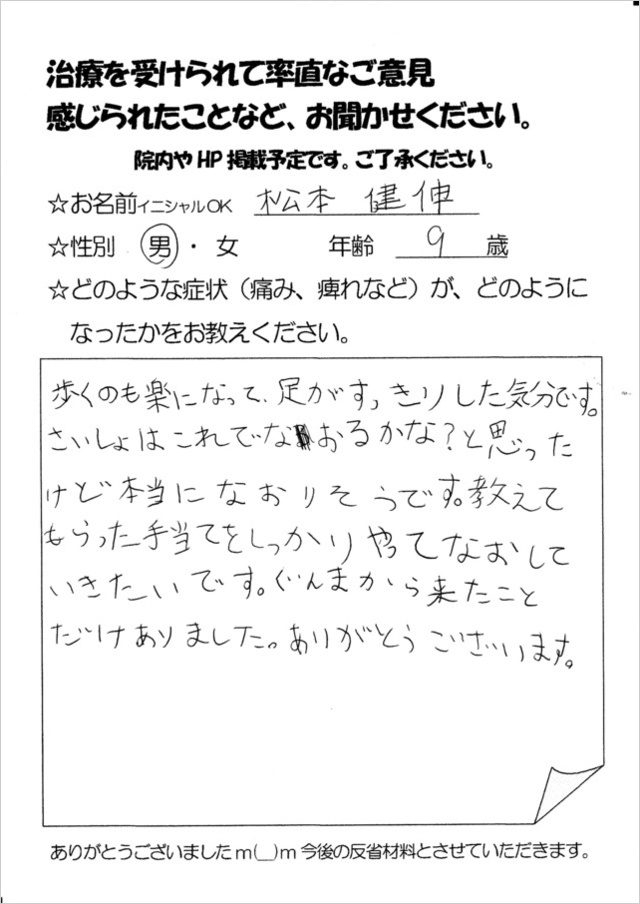 治療を受けられて率直なご意見
感じられたことなど、お聞かせください。
院内やHP掲載予定です。ご了承ください。
☆お名前イニシャルOK 松本 健伸
☆性別 男・女 年齢 9 歳
☆どのような症状（痛み、痺れなど）が、どのように
なったかをお教えください。
歩くのも楽になって、足がすっきりした気分です。
さいしょはこれでなおるかな？と思った
けど本当になおりそうです。教えて
もらった手当てをしっかりやってなおして
いきたいです。ぐんまから来たこと
だけありました。ありがとうございます。
ありがとうございましたm(__)m今後の反省材料とさせていただきます。